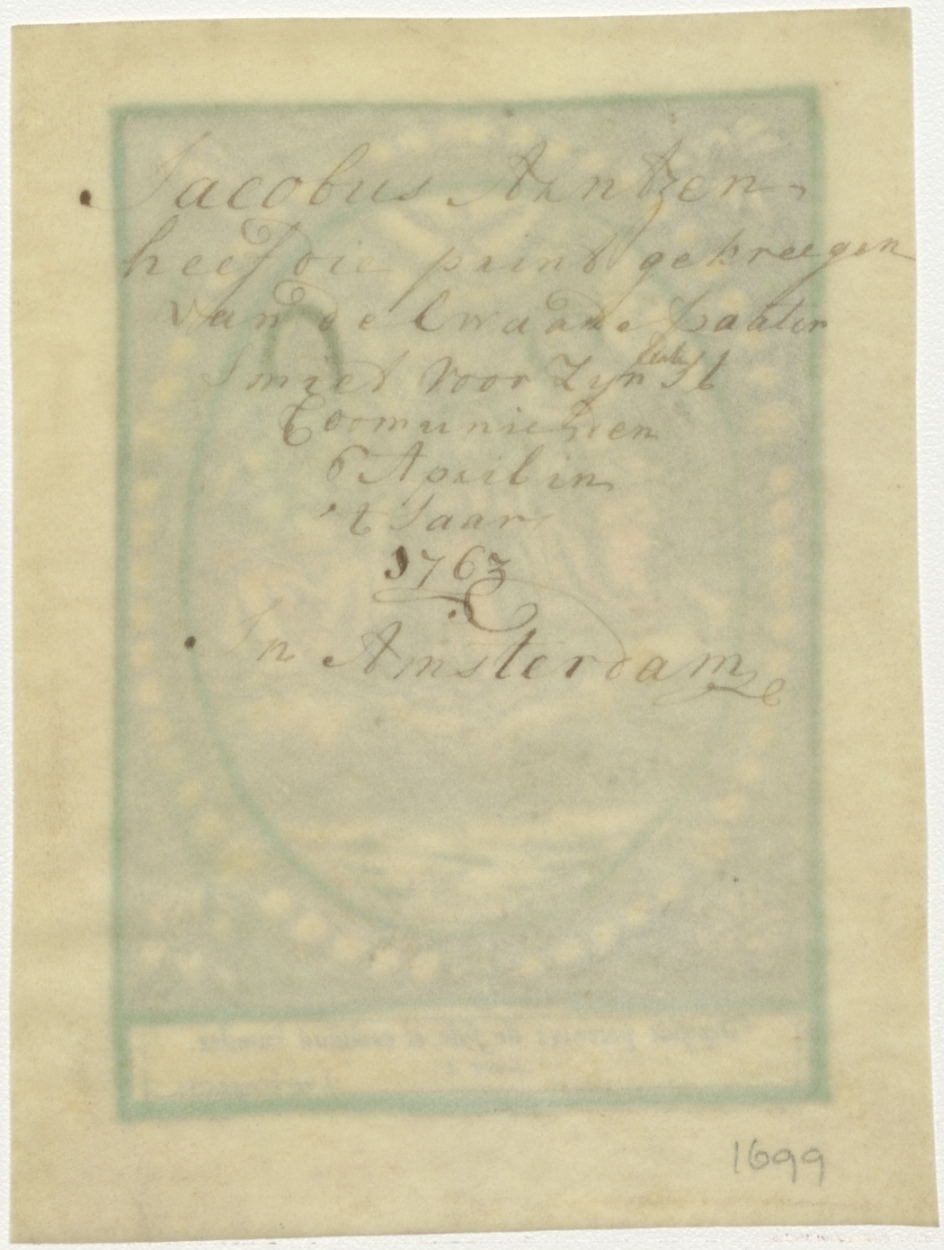 Jacobus Arntzen
heef die print gekreegen
van de Eerwaarde Paater
Smiet voor Zyn
Coomunieseren
6 April in
't Jaar
1763
In Amsterdam
1699